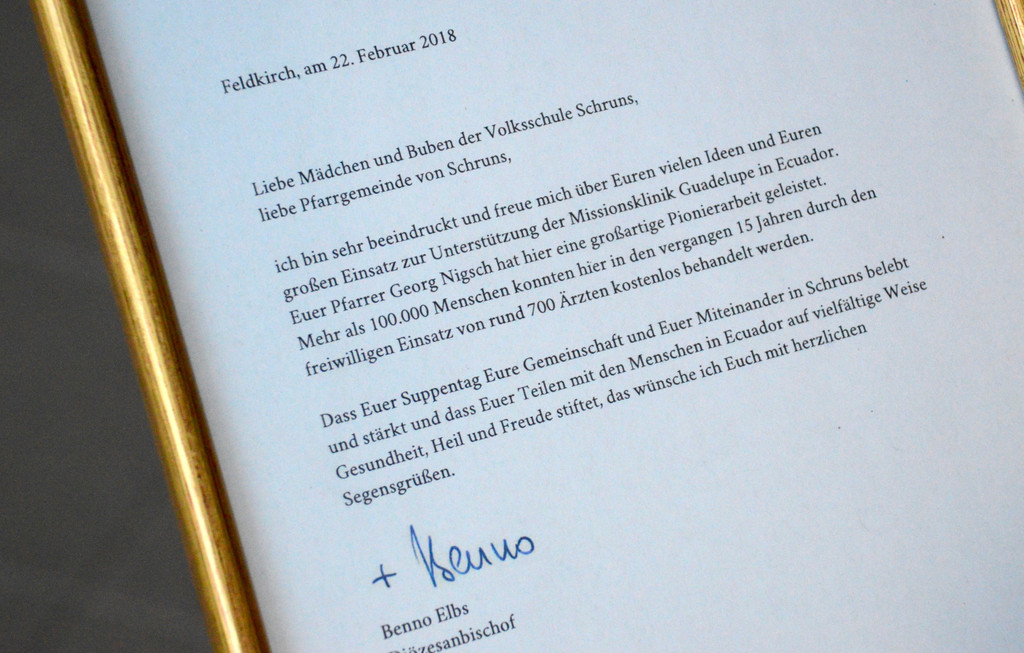 Feldkirch, am 22. Februar 2018
Liebe Mädchen und Buben der Volksschule Schruns,
liebe Pfarrgemeinde von Schruns,
ich bin sehr beeindruckt und freue mich über Euren vielen Ideen und Euren
großen Einsatz zur Unterstützung der Missionsklinik Guadelupe in Ecuador.
Euer Pfarrer Georg Nigsch hat hier eine großartige Pionierarbeit geleistet.
Mehr als 100.000 Menschen konnten hier in den vergangen 15 Jahren durch den
freiwilligen Einsatz von rund 700 Ärzten kostenlos behandelt werden.
Dass Euer Suppentag Eure Gemeinschaft und Euer Miteinander in Schruns belebt
und stärkt und dass Euer Teilen mit den Menschen in Ecuador auf vielfältige Weise
Gesundheit, Heil und Freude stiftet, das wünsche ich Euch mit herzlichen
Segensgrüßen.
+ Benno
Benno Elbs
Diözesanbischof